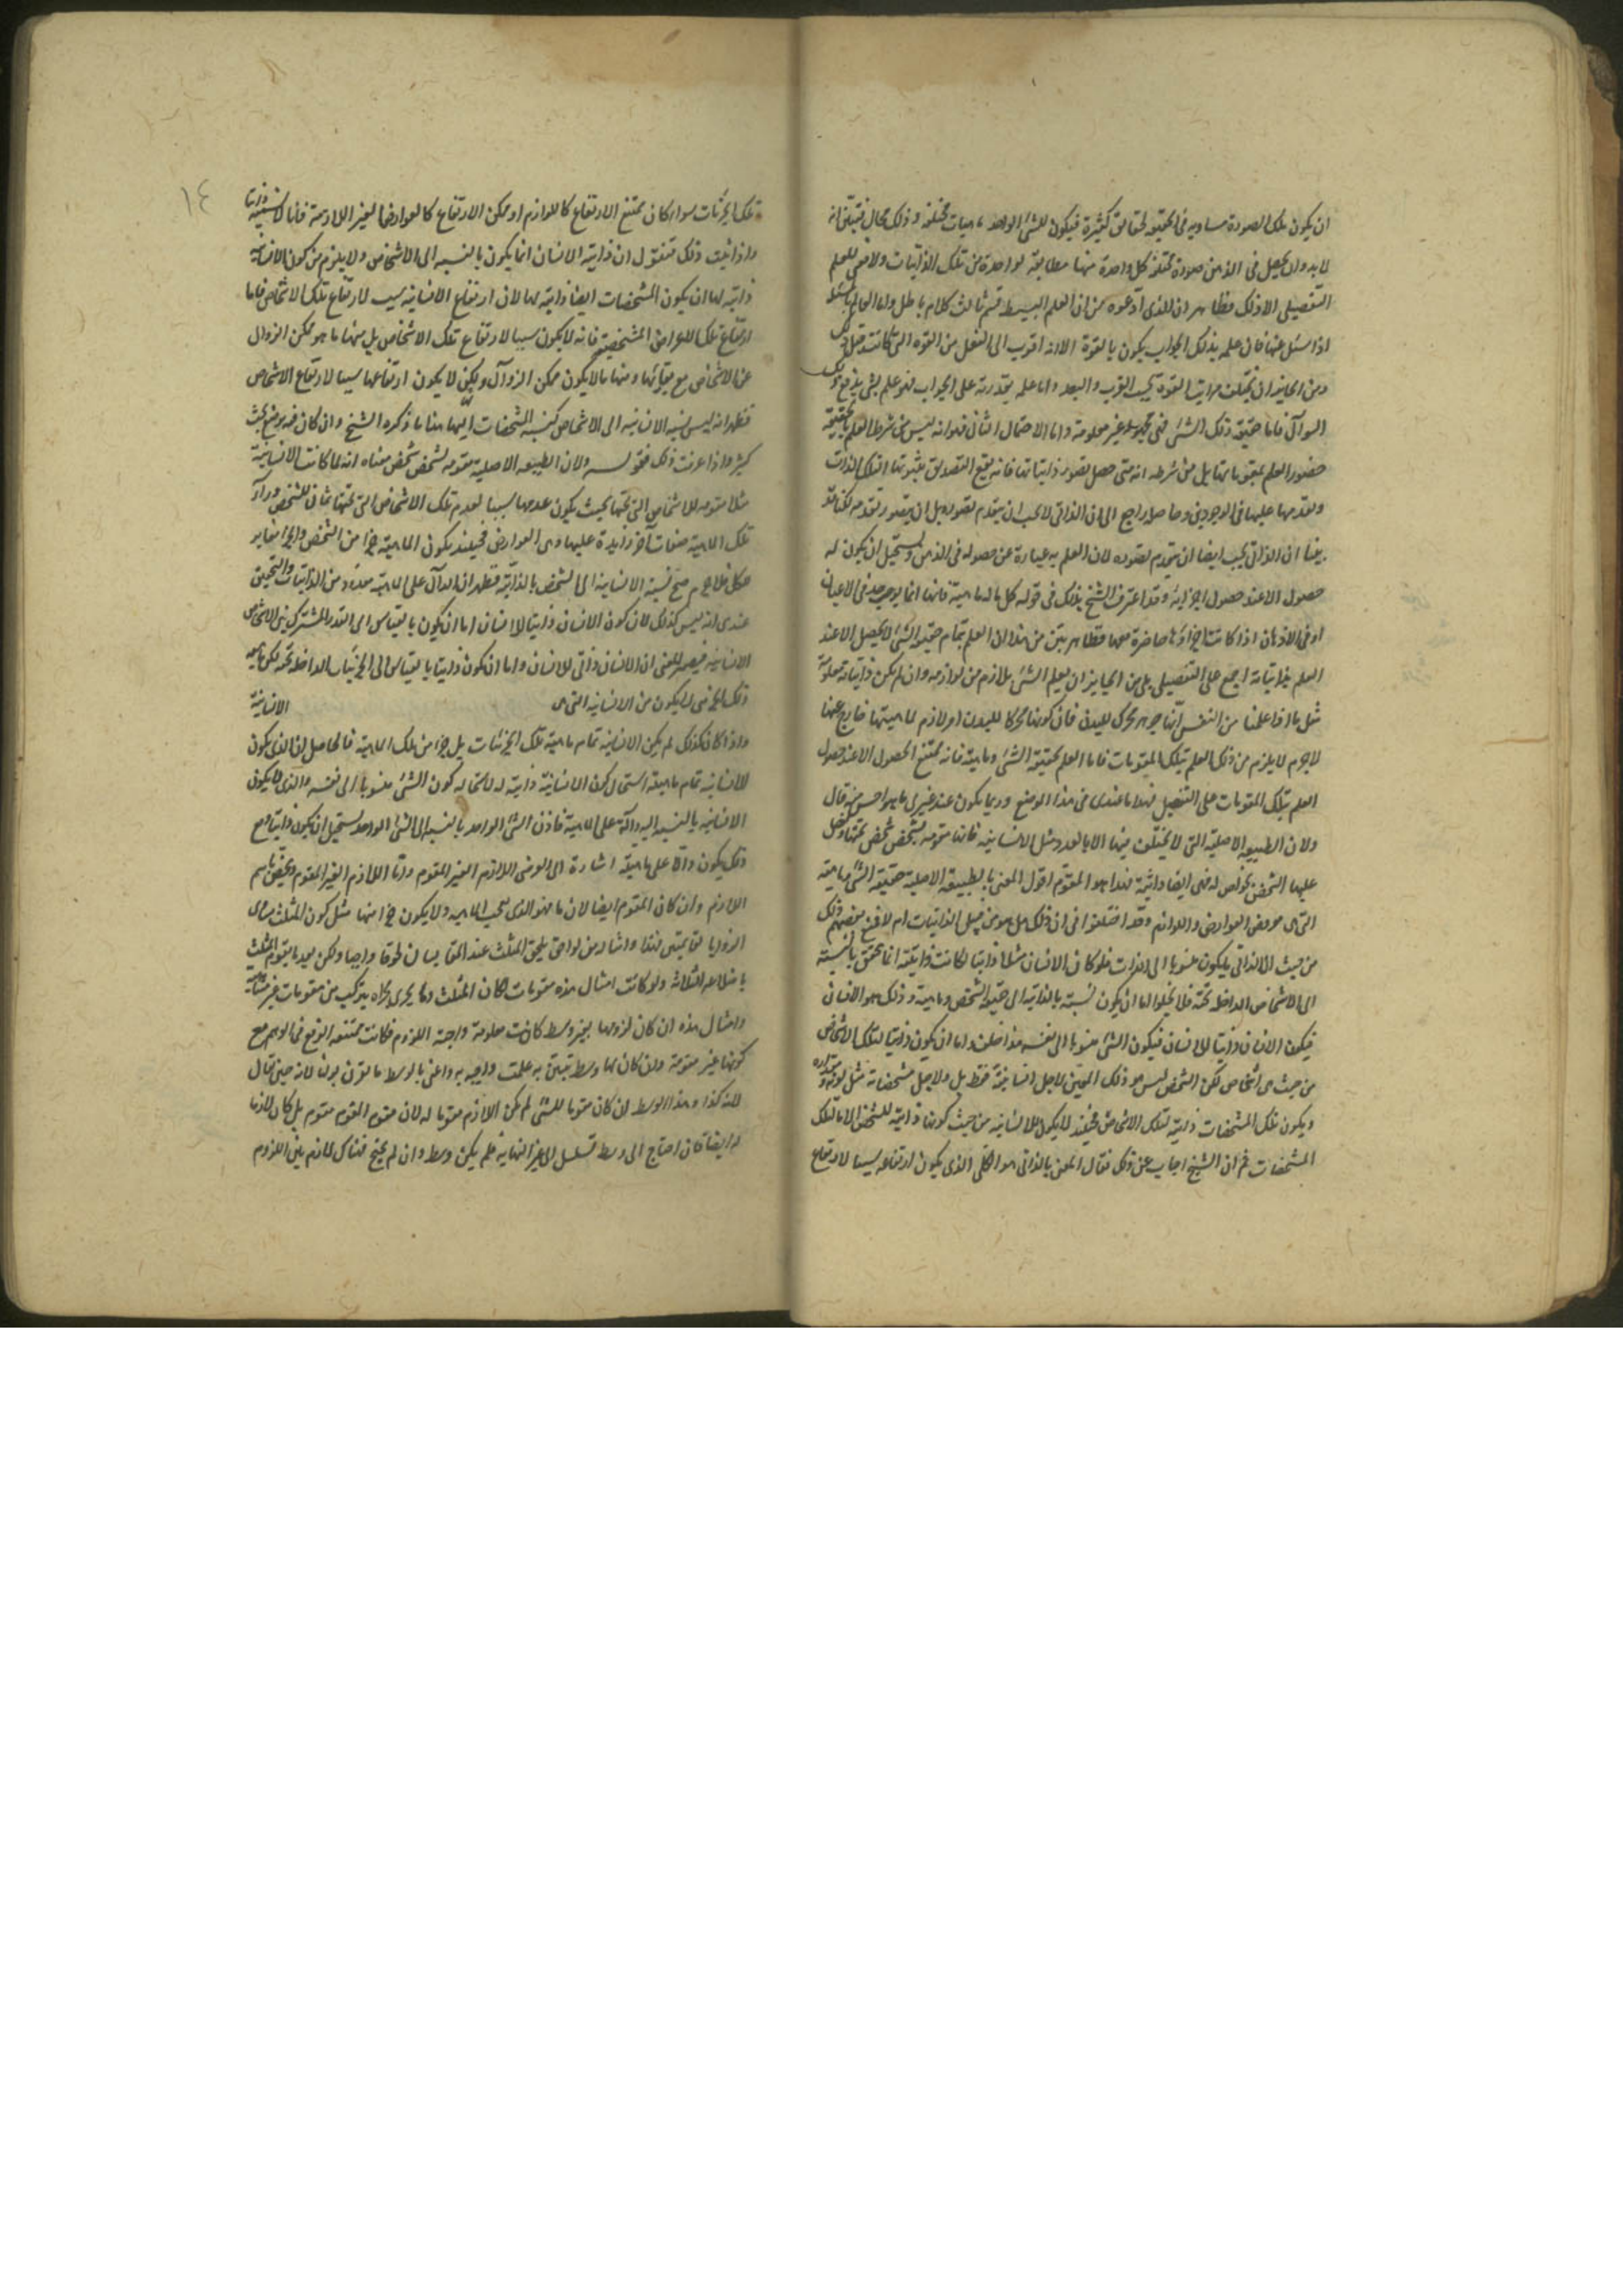 ان يكون تلك الصورة مساويه فى الحقيقه لحقايق كثيرة فيكون للشئ الواحد ماهيات مختلفة وذلك محال فتبين انه
لا بد وان يحصل فى الذهن صورة مختلفة كل واحدة منها مطابقة لواحدة من تلك الذاتيات ولا معنى للعلم
التفصيلى الا ذلك فظاهر ان الذى ادعوه من ان العلم البسيط قسم ثالث كلام باطل واما العالم بالمسئلة
اذا سئل عنها فان علمه بذلك الجواب يكون بالقوة الا انه اقرب الى الفعل من القوة التى كانت قبل ذلك
ومن الجايز ان يختلف مراتب القوة بحسب القرب والبعد واما علمه بقدرته على الجواب فهو علم بشئ يدفع ذلك
السوآل فاما حقيقة ذلك الشئ فهى مجهوله غير معلومة واما الاحتمال الثانى فهو انه ليس من شرط العلم بالحقيقة
حضور العلم بمقوماتها بل من شرطه انه متى حصل تصور ذاتياتها فانه يقع التصديق بثبوتها لتلك الذات
وتقدمها عليها فى الوجودين وحاصله راجع الى ان الذاتى لا يجب ان يتقدم تصوره بل ان يتصور تقدمه لكنا قد
بينا ان الذاتى يجب ايضا ان يتقدم تصوره لان العلم به عبارة عن حصوله فى الذهن ويستحيل ان يكون له
حصول الا عند حصول اجزائه وقد اعترف الشيخ بذلك فى قوله كل ما له ماهية فانها انما يوجد فى الاعيان
او فى الاذهان اذا كانت اجزاؤها حاضرة معها فظاهر بين من هذا ان العلم بتمام حقيقة الشئ لا يحصل الا عند
العلم بذاتياته اجمع على التفصيل بلى من الجايز ان يعلم الشئ بلازم من لوازمه وان لم يكن ذاتياته معلومة
مثل ما اذا علمنا من النفس انها جوهر محرك للبدن فان كونها محركا للبدن امر لازم لماهيتها خارج عنها
لاجرم لا يلزم من ذلك العلم بتلك المقومات فاما العلم بحقيقة الشئ وماهيته فانه ممتنع الحصول الا عند حصول
العلم بتلك المقومات على التفصيل فهذا ما عندى فى هذا الموضع وربما يكون عند غيرى ما هو احسن منه قال
ولان الطبيعه الاصلية التى لا يختلف فيها الا بالعدد مثل الانسانية فانها مقومه لشخص شخص تحتها ويفضل
عليها الشخص بخواص له فهى ايضا ذاتية فهذا هو المقوم اقول المعنى بالطبيعة الاصلية حقيقة الشئ وماهيته
التى هى معروض العوارض واللوازم وقد اختلفوا فى ان ذلك هل هو من قبيل الذاتيات ام لا فمنع بعضهم ذلك
من حيث ان الذاتى ما يكون منسوبا الى الذات فلو كان الانسان مثلا ذاتيا لكانت ذاتيته انما تحقق بالنسبة
الى الاشخاص الداخلة تحته فلا يخلو اما ان يكون نسبته بالذاتية الى حقيقة الشخص وماهيته وذلك هو الانسان
فيكون الانسان ذاتيا للانسان فيكون الشئ منسوبا الى نفسه هذا خلف واما ان يكون ذاتيا لتلك الاشخاص
من حيث هى اشخاص لكن الشخص ليس هو ذلك المعين لاجل انسانيته فقط بل ولاجل مشخصاته مثل لونه ومقداره
ويكون تلك المشخصات ذاتية لتلك الاشخاص فحينئذ لا يكون للانسانية من حيث كونها ذاتية للشخص الا ما لتلك
المشخصات ثم ان الشيخ اجاب عن ذلك فقال المعنى بالذاتى هو الكلى الذى يكون ارتفاعه سببا لارتفاع
١٤
تلك الجزئيات سواء كان ممتنع الارتفاع كاللوازم او ممكن الارتفاع كالعوارض الغير اللازمة فانا لا نسميه ذاتيا
واذا ثبت ذلك فنقول ان ذاتية الانسان انما يكون بالنسبه الى الاشخاص ولا يلزم من كون الانسانية
ذاتية لها ان يكون المشخصات ايضا ذاتية لها لان ارتفاع الانسانيه سبب لارتفاع تلك الاشخاص فاما
ارتفاع تلك الاعراض المشخصة فانه لا يكون سببا لارتفاع تلك الاشخاص بل منها ما هو ممكن الزوال
عن الاشخاص مع بقائها ومنها ما لا يكون ممكن الزوآل ولكن لا يكون ارتفاعها سببا لارتفاع الاشخاص
فظهر انه ليس نسبة الانسانيه الى الاشخاص كنسبة المشخصات اليها هذا ما ذكره الشيخ وان كان فيه موضع بحث
كثير واذا عرفت ذلك فقوله ولان الطبيعه الاصلية مقومه لشخص شخص معناه انه لما كانت الانسانية
مثلا مقومه للاشخاص التى تحتها بحيث يكون عدمها سببا لعدم تلك الاشخاص التى تحتها ثم ان للشخص ورآء
تلك الماهية صفات آخر زايدة عليها وهى العوارض فحينئذ يكون الماهية جزءا من الشخص والجزء مغاير
للكل فلاجرم صح نسبة الانسانية الى الشخص بالذاتية فظهر ان الدآل على الماهية معدود من الذاتيات والتحقيق
عندى انه ليس كذلك لان كون الانسان ذاتيا للانسان اما ان يكون بالقياس الى القدر المشترك بين الاشخاص
الانسانية فيصير المعنى ان الانسان ذاتى للانسان واما ان يكون ذاتيا بالقياس الى الجزئيات الداخلة تحته لكن ماهية
ذلك الجزئى لا يكون من الانسانية التى هى الانسانية
واذا كان كذلك لم يكن الانسانية تمام ماهية تلك الجزئيات بل جزء من تلك الماهية فالحاصل ان الذى يكون
الانسانيه تمام ماهيته استحال كون الانسانية ذاتية له لاستحالة كون الشئ منسوبا الى نفسه والذى لا يكون
الانسانيه بالنسبه اليه دالة على الماهية فاذن الشئ الواحد بالنسبة الى الشئ الواحد يستحيل ان يكون ذاتيا ومع
ذلك يكون دالا على ماهيته اشارة الى العرضى اللازم الغير المقوم واما اللازم الغير المقوم ويخص باسم
اللازم وان كان المقوم ايضا لازما فهو الذى يصحب الماهيه ولا يكون جزءا منها مثل كون المثلث مساوى
الزوايا لقايمتين فهذا وامثاله من لواحق يلحق المثلث عند المقايسات لحوقا واجبا ولكن بعد ما يتقوم المثلث
باضلاعه الثلاثة ولو كانت امثال هذه مقومات لكان المثلث وما يجرى مجراه يتركب من مقومات غير متناهية
وامثال هذه ان كان لزومها بغير وسط كانت معلومة واجبة اللزوم فكانت ممتنعه الرفع فى الوهم مع
كونها غير مقومة وان كان لها وسط يتبين به علمت واجبه به واعنى بالوسط ما يقرن بقولنا لانه حين يقال
لانه كذا وهذا الوسط ان كان مقوما للشئ لم يكن اللازم مقوما له لان مقوم المقوم مقوم بل كان لازما
له ايضا فان احتاج الى وسط تسلسل الى غير النهاية فلم يكن وسط وان لم يحتج فهناك لازم بين اللزوم